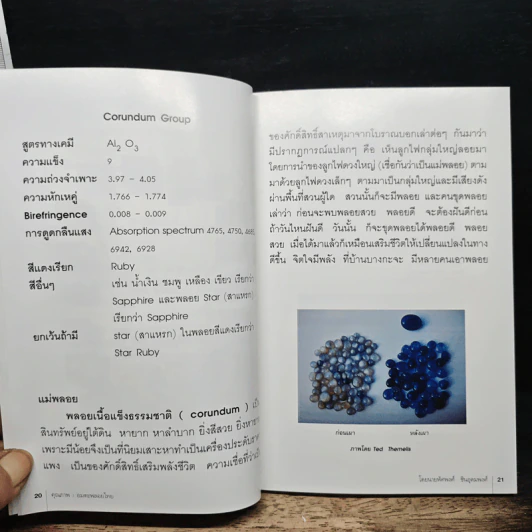 Corundum Group
สูตรทางเคมี Al2 O3
ความแข็ง 9
ความถ่วงจำเพาะ 3.97 - 4.05
ความหักเหคู่ 1.766 - 1.774
Birefringence 0.008 - 0.009
การดูดกลืนแสง Absorption spectrum 4765, 4750,
6942, 6928
สีแดงเรียก Ruby
สีอื่นๆ เช่น น้ำเงิน ชมพู เหลือง เขียว เรียกว่า
Sapphire และพลอย Star (สาแหรก)
เรียกว่า Sapphire
ยกเว้นถ้ามี star (สาแหรก) ในพลอยสีแดงเรียกว่า
Star Ruby
แม่พลอย
พลอยเนื้อแข็งธรรมชาติ ( corundum )
สินทรัพย์อยู่ใต้ดิน หายาก หาลำบาก ยิ่งสีสวย
เพราะมีน้อยจึงเป็นที่นิยมเสาะหาทำเป็นเครื่องประดับ
แพง เป็นของศักดิ์สิทธิ์เสริมพลังชีวิต ความเชื่อที่ว่า
20
ของศักดิ์สิทธิ์สาเหตุมาจากโบราณบอกเล่าต่อๆ กันมาว่า
มีปรากฏการณ์แปลกๆ คือ เห็นลูกไฟกลุ่มใหญ่ลอยมา
โดยการนำของลูกไฟดวงใหญ่ (เชื่อกันว่าเป็นแม่พลอย) ตาม
มาด้วยลูกไฟดวงเล็กๆ ตามมาเป็นกลุ่มใหญ่และมีเสียงดัง
ผ่านพื้นที่สวนผู้ใด สวนนั้นก็จะมีพลอย และคนขุดพลอย
เล่าว่า ก่อนจะพบพลอยสวย พลอยดี จะต้องฝันดีก่อน
ถ้าวันไหนฝันดี วันนั้น ก็จะขุดพลอยได้พลอยดี พลอย
สวย เมื่อได้มาแล้วก็เหมือนเสริมชีวิตให้เปลี่ยนแปลงในทาง
ดีขึ้น จิตใจมีพลัง ที่บ้านบางกะจะ มีหลายคนเอาพลอย
ก่อนเผา หลังเผา
ภาพโดย Ted Themelis
21